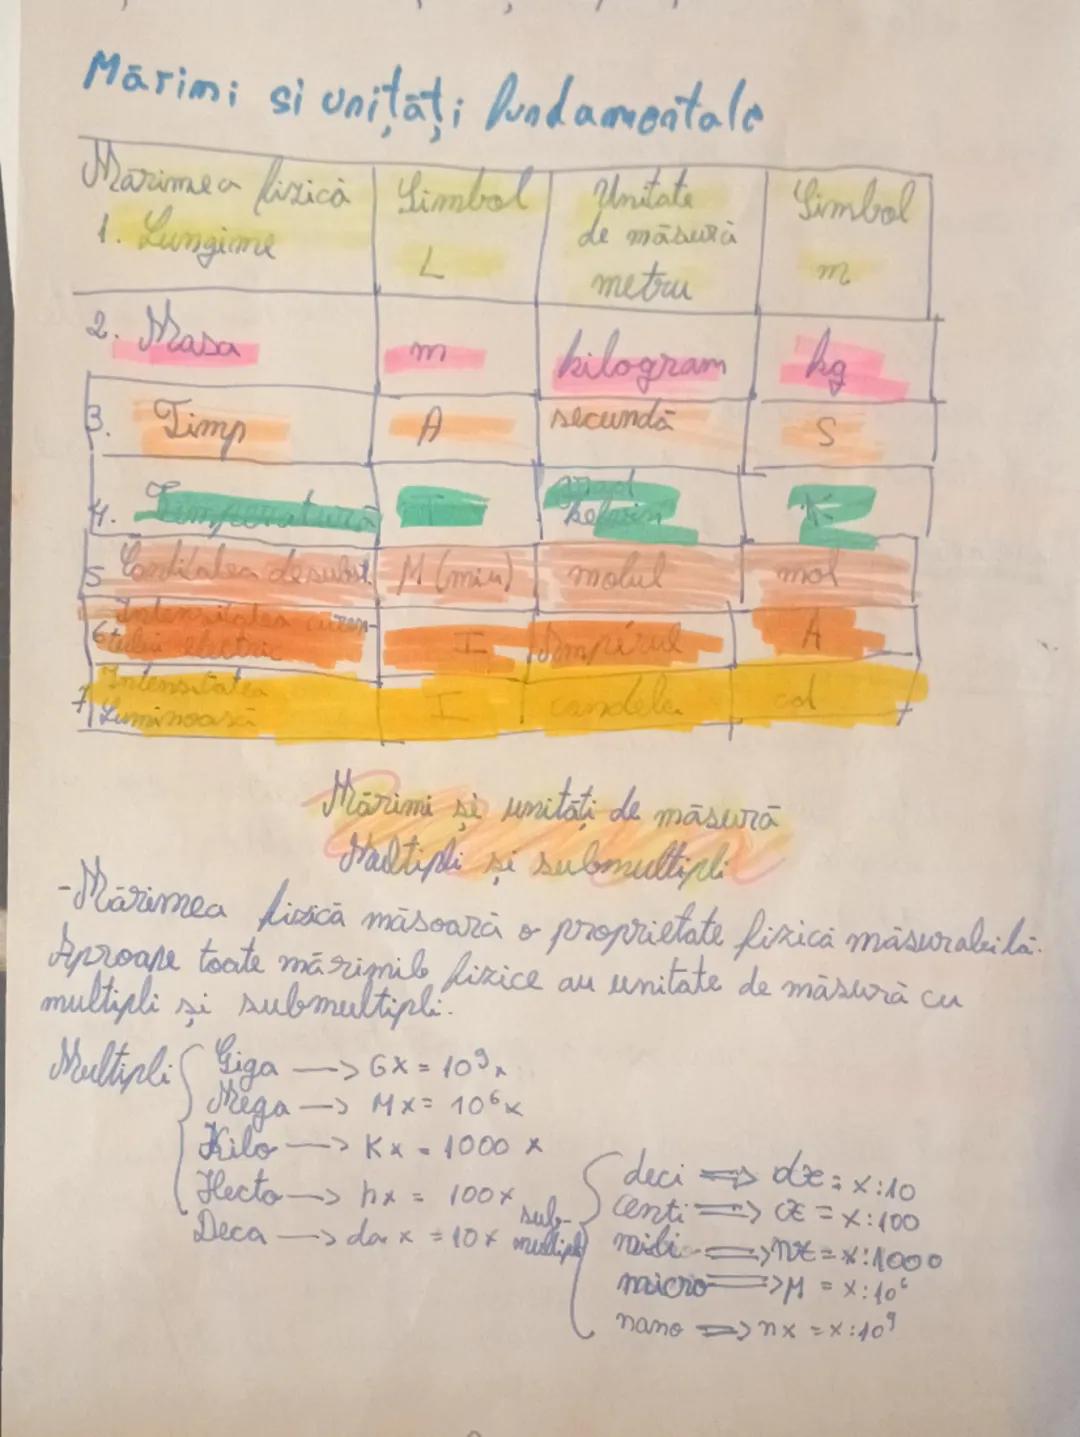 Mărimi si unități fundamentale
Marimea fizică Simbol Unitate de măsură Simbol
1. Lungime L metru m
2. Masa m kilogram kg
3. Timp A secundă S
4. Temperatură T grad kelvin K
5 Cantitatea de subst. M (miu) molul mol
6 Intensitatea curentului electric I Amperul A
7 Intensitatea Luminoasă I candela cd
Mărimi și unități de măsură
Multipli și submultipli
-Mărimea fizică măsoară o proprietate fizică măsurabilă.
Aproape toate mărimile fizice au unitate de măsură cu
multipli și submultipli.
Multipli Giga —> Gx = 10⁹x
Mega —> Mx = 10⁶x
Kilo —> Kx = 1000 x
Hecto —> hx = 100x
Deca —> da x = 10x
submultipli deci => dx = x:10
centi => cx = x:100
mili => mx = x:1000
micro => M = x:10⁶
nano => nx = x:10⁹